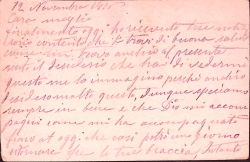 12 Novembre 1915
Cara moglie
finalmente oggi ho ricevuto tue notizie
sono contento che ti trovi di buona salute
come ti posso dire anch'io al presente
senti il desiderio che hai di vedermi
questo me lo immagino perché anch'io
desidero molto questo, dunque speriamo
sempre in bene e che Dio mi accom
pagni come mi ha accompagnato
fino at oggi che così potrò un giorno
ritornare fra le tue braccia,